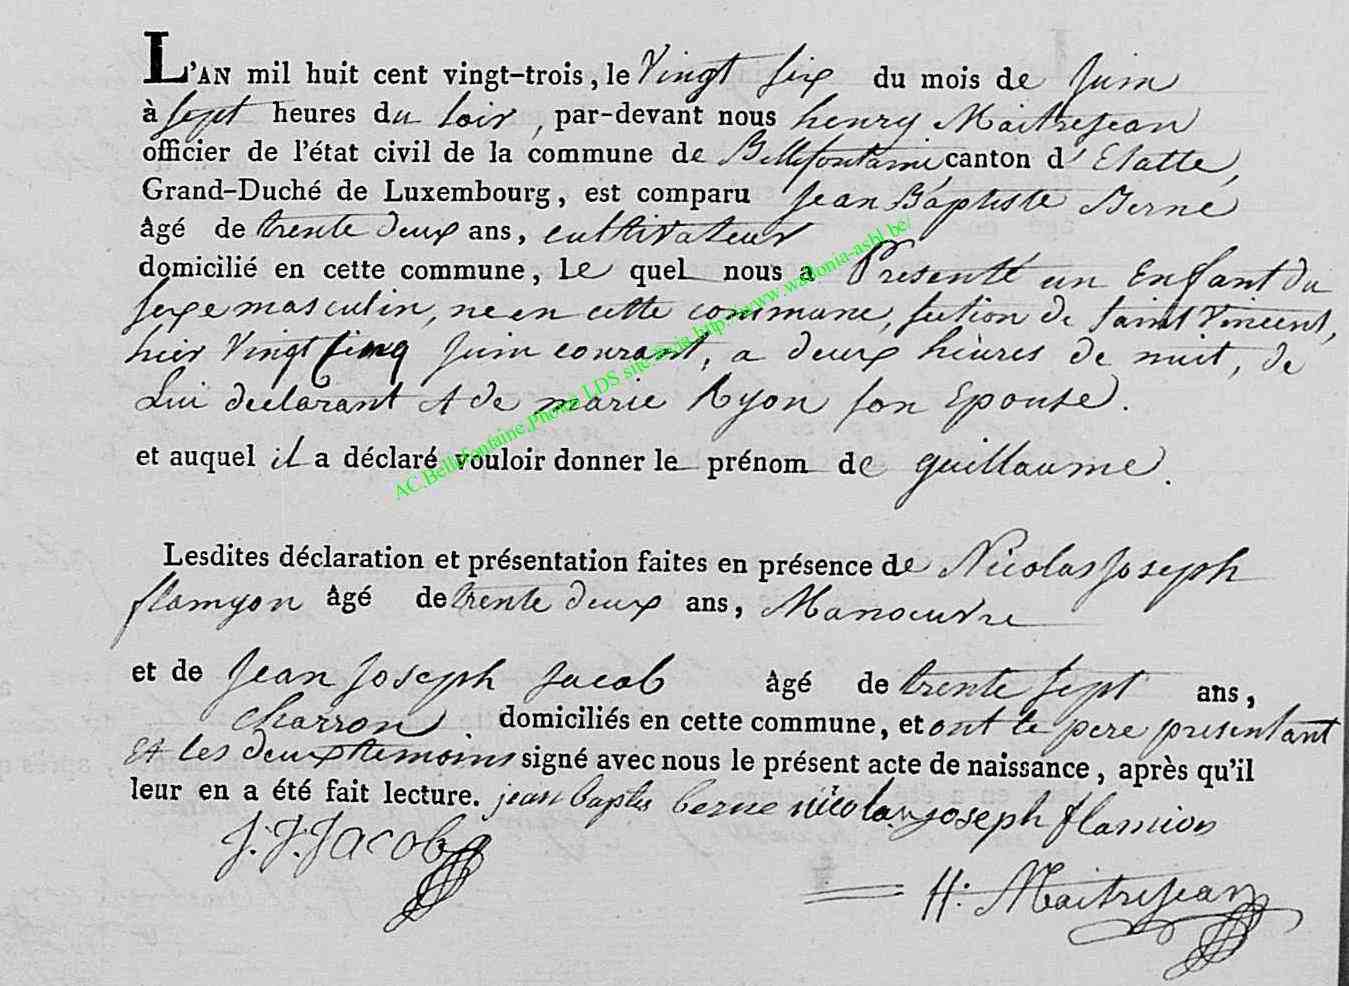 L'AN mil huit cent vingt-trois, le Vingt Six du mois de Juin
à Sept heures du Soir, par-devant nous henry Maitrejean
officier de l'état civil de la commune de Bellefontaine, canton d'Etalle,
Grand-Duché de Luxembourg, est comparu Jean Baptiste Berne
âgé de trente Deux ans, cultivateur
domicilié en cette commune, le quel nous a Presenté un Enfant du
sexe masculin, ne en cette commune, section de Saint Vincent,
hier Vingt Cinq Juin courant, a deux heures de nuit, de
Lui declarant et de marie Ryon son Epouse.
et auquel il a déclaré vouloir donner le prénom de guillaume.
Lesdites déclaration et présentation faites en présence de Nicolas Joseph
flamyon âgé de trente deux ans, Manoeuvre
et de Jean Joseph Jacob âgé de trente sept ans,
Charron domiciliés en cette commune, et ont le pere presentant
Et les deux temoins signé avec nous le présent acte de naissance, après qu'il
leur en a été fait lecture. jean baptis berne nicolas joseph flamion
J. J. Jacob
H. Maitrejean
AC.Bellefontaine.Photos LDS site http://www.wallonia-asbl.be/